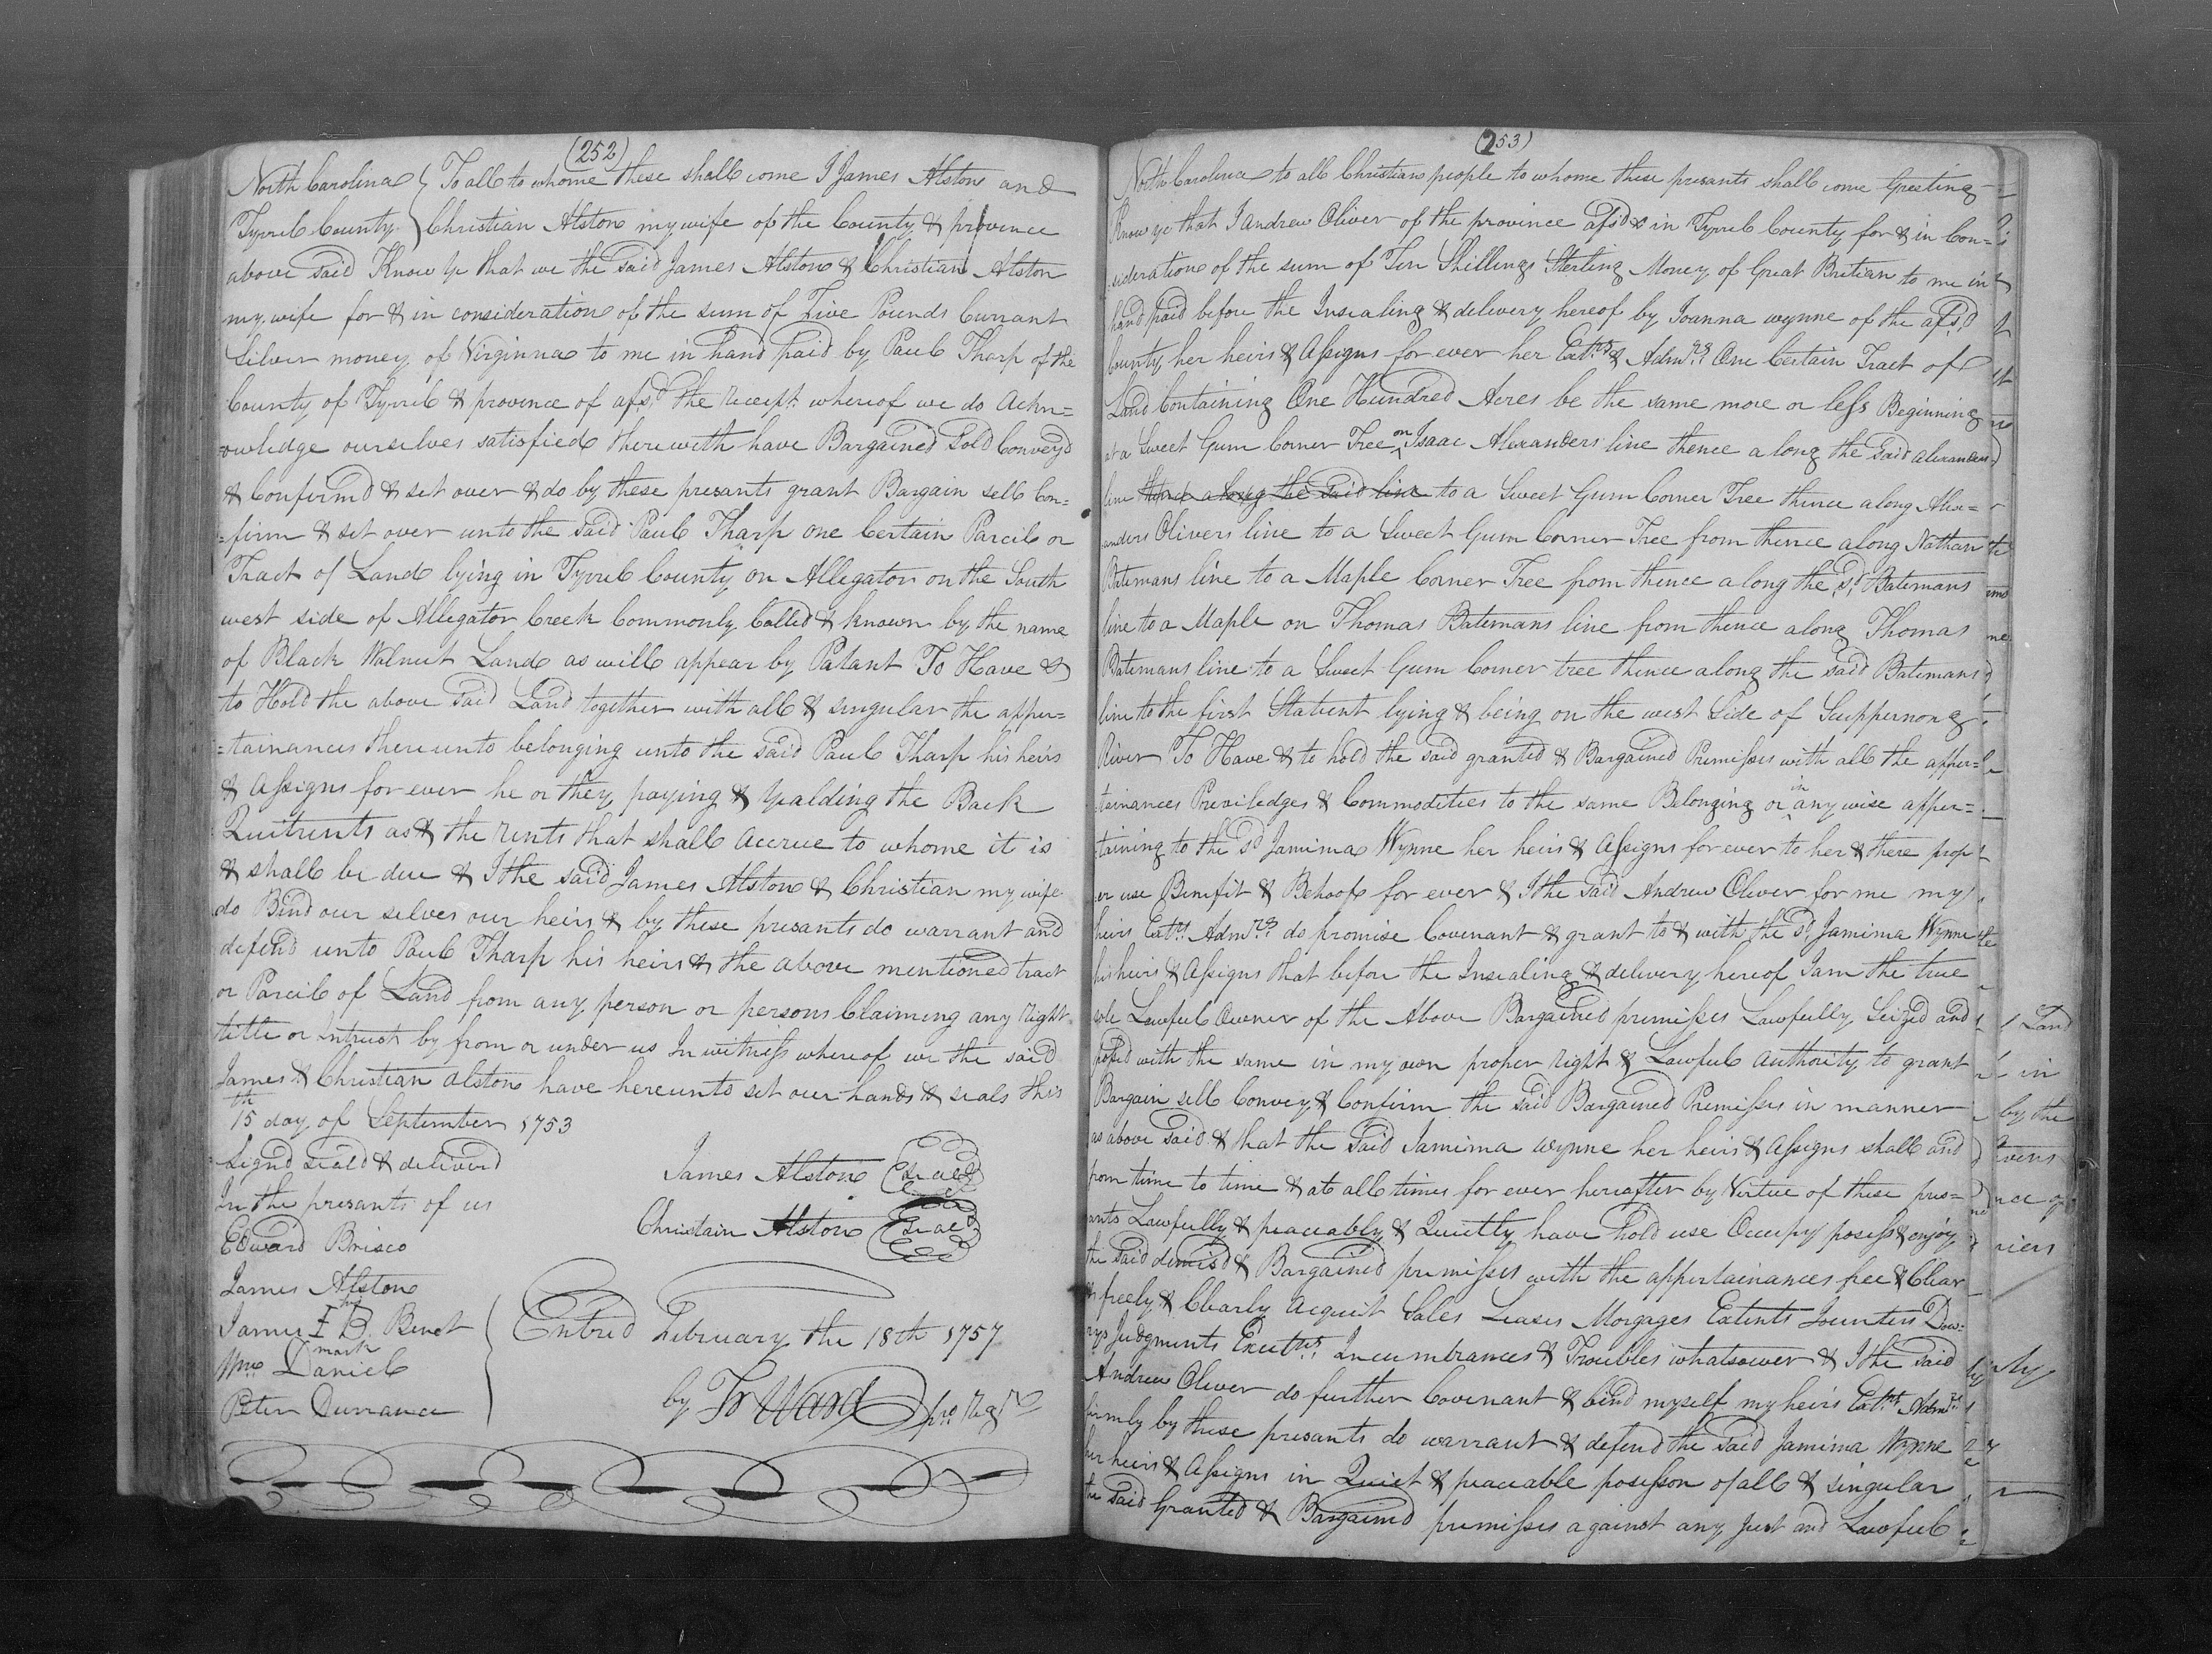 (252)
North Carolina } To all to whome these shall come I James Alston and
Tyrril County } Christian Alston my wife of the County & province
above said Know Ye that we the said James Alston & Christian Alston
my wife for & in consideration of the sum of Five Pounds Currant
Silver money of Virginna to me in hand paid by Paul Tharp of the
County of Tyrril & province of afsd. the receipt whereof we do Ackn=
=owledge ourselves satisfied therewith have Bargained Sold Conveyd
& Confirmd & set over & do by these presants grant Bargain sell Con=
=firm & set over unto the said Paul Tharp one Certain Parcil or
Tract of Land lying in Tyrril County on Allegator on the South
west side of Allegator Creek Commonly Called & known by the name
of Black Walnut Land as will appear by Patant To Have &
to Hold the above said Land together with all & singular the apper=
=tainances thereunto belonging unto the said Paul Tharp his heirs
& Assigns for ever he or they paying & yealding the Back
Quitrents as & the rents that shall accrue to whome it is
& shall be due & I the said James Alston & Christian my wife
do Bind our selves our heirs & by these presants do warrant and
defend unto Paul Tharp his heirs & the above mentioned tract
or Parcil of Land from any person or persons Claiming any right
title or Intrust by from or under us In witness whereof we the said
James & Christian Alston have hereunto set our hands & seals this
15th day of September 1753
Signd seald & deliverd
In the presants of us
James Alston (Seal)
Christain Alston (Seal)
Edward Brisco
James Alston
James I B. Benet
his mark
Wm Daniel
Peter Durrance
Entred February the 18th 1757
by Ward pro Regr
(253)
North Carolina to all Christian people to whome these presants shall come Greeting
Know ye that I Andrew Oliver of the province afsd & in Tyrril County for & in Con=
sideration of the sum of Ten Shillings Sterling Money of Great Britian to me in
hand paid before the Insealing & delivery hereof by Joanna Wynne of the afsd
County her heirs & Assigns for ever her Extrs & Admrs One Certain Tract of
Land Containing One Hundred Acres be the same more or less Beginning
at a Sweet Gum Corner Tree on Isaac Alexanders line thence along the said Alexanders
line thence along the said line to a Sweet Gum Corner Tree thence along Alex=
anders Olivers line to a Sweet Gum Corner Tree from thence along Nathan
Batemans line to a Maple Corner Tree from thence along the sd. Batemans
line to a Maple on Thomas Batemans line from thence along Thomas
Batemans line to a Sweet Gum Corner tree thence along the said Batemans
line to the first Statient lying & being on the west Side of Scuppernong
River To Have & to hold the said granted & Bargained Premisses with all the apper=
tainances Previledges & Commodities to the same Belonging or in any wise apper=
taining to the sd Jamima Wynne her heirs & Assigns for ever to her & there prop
er use Benefit & Behoof for ever & I the said Andrew Oliver for me my
heirs Extrs Admrs do promise Covenant & grant to & with the sd Jamima Wynne
heirs & Assigns that before the Insealing & delivery hereof I am the true
sole Lawful Owner of the Above Bargained premisses Lawfully Seized and
posed with the same in my own proper right & Lawful authority to grant
Bargain sell Convey & Confirm the said Bargained Premisses in manner
as above said & that the said Jamima Wynne her heirs & Assigns shall and
from time to time & at all times for ever hereafter by Virtue of these pres=
ants Lawfully & peaceably & Quietly have hold use Occupy posess & enjoy
the said demisd & Bargained premisses with the appertainances free & Clear
& freely & Clearly Acquit Sales Leases Morgages Extents Jointers Dow=
rys Judgments Exects Incumbrances & Troubles whatsoever & I the said
Andrew Oliver do further Covenant & bind myself my heirs Extrs Admrs
firmly by these presants do warrant & defend the said Jamima Wynne
her heirs & Assigns in Quiet & peaceable posesson of all & singular
the said Granted & Bargained premisses against any just and Lawful
Land
in
by the